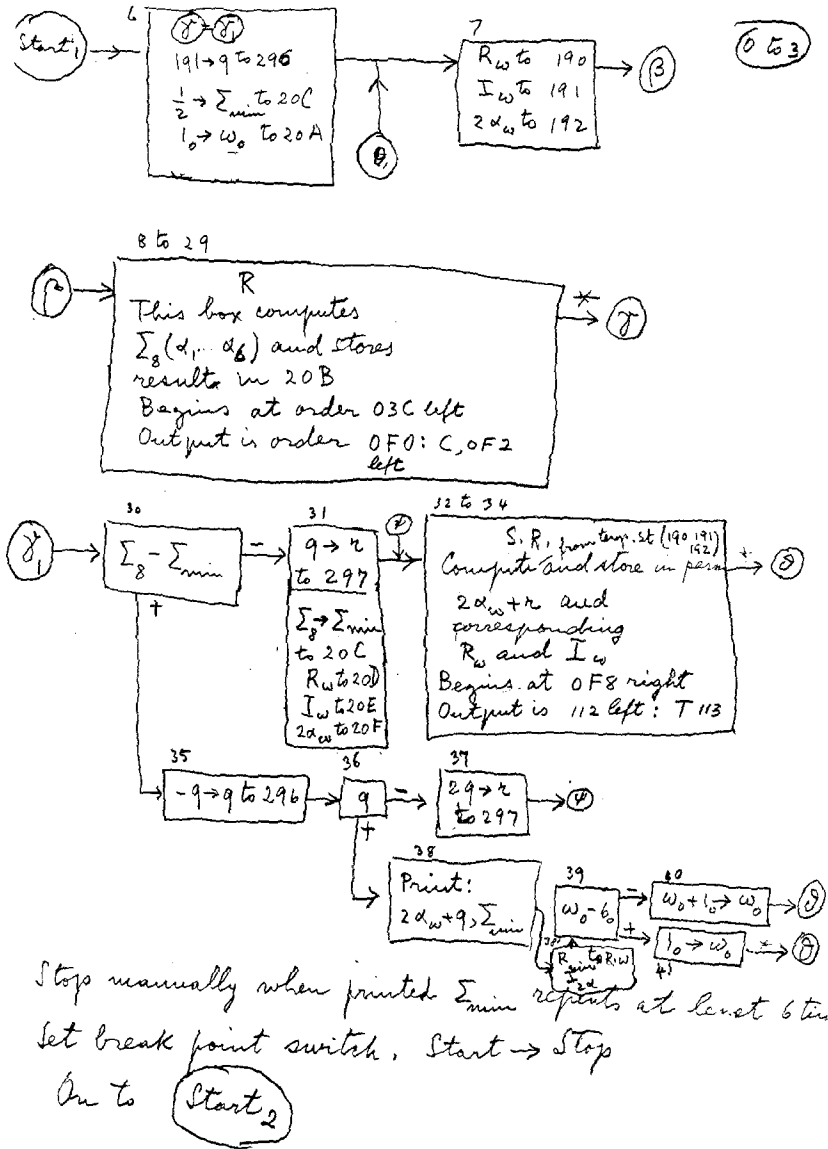 Start₁
6
γ = γ₁
|9| → 9 to 296
½ → Σmin to 20C
1₀ → ω₀ to 20A
θ₁
7
Rω to 190
Iω to 191
2αω to 192
β
0 to 3
8 to 29
β
R
This box computes
Σ₈(α₁... α₆) and stores
results in 20B
Begins at order 03C left
Output is order 0F0: C, 0F2
left
γ
γ₁
30
Σ₈ - Σmin
-
+
31
9 → r
to 297
Σ₈ → Σmin
to 20C
Rω to 20D
Iω to 20E
2αω to 20F
32 to 34
S.R. from temp. st (190 191
192)
Compute and store in perm
2αω + r and
corresponding
Rω and Iω
Begins at 0F8 right
Output is 112 left: T 113
35
-9 → 9 to 296
36
9
-
+
37
29 → r
to 297
ψ
38
Print:
2αω + 9, Σmin
39
ω₀ - 6₀
-
+
40
ω₀ + 1₀ → ω₀
1₀ → ω₀
41
Stop manually when printed Σmin repeats at least 6 tim
Set break point switch. Start → Stop
On to Start₂